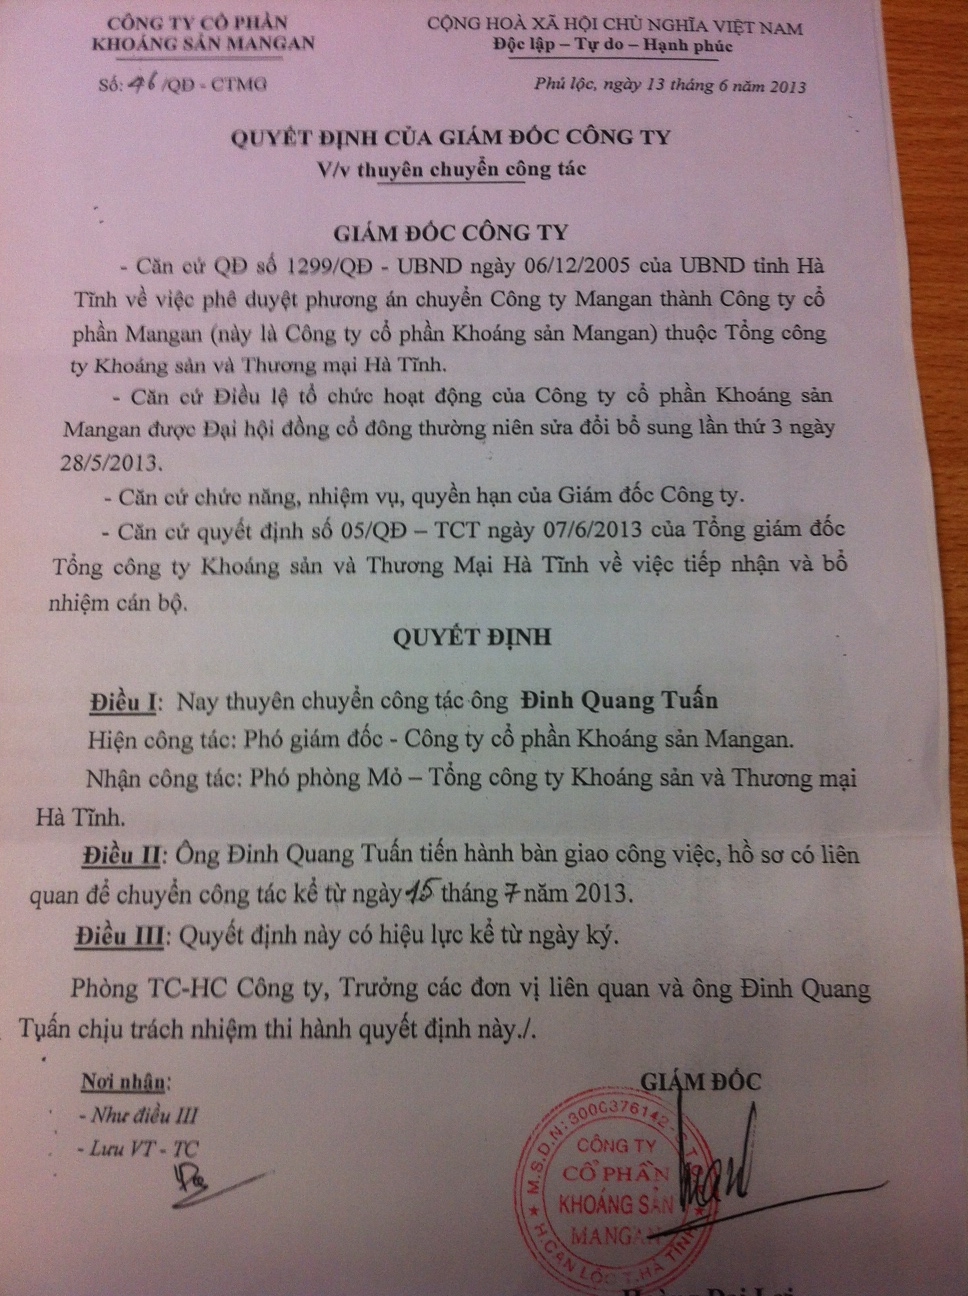 CÔNG TY CỔ PHẦN
KHOÁNG SẢN MANGAN
Số: 46/QĐ - CTMG
CỘNG HOÀ XÃ HỘI CHỦ NGHĨA VIỆT NAM
Độc lập – Tự do – Hạnh phúc
Phú lộc, ngày 13 tháng 6 năm 2013
QUYẾT ĐỊNH CỦA GIÁM ĐỐC CÔNG TY
V/v thuyên chuyển công tác
GIÁM ĐỐC CÔNG TY
- Căn cứ QĐ số 1299/QĐ - UBND ngày 06/12/2005 của UBND tỉnh Hà
Tĩnh về việc phê duyệt phương án chuyển Công ty Mangan thành Công ty cổ
phần Mangan (này là Công ty cổ phần Khoáng sản Mangan) thuộc Tổng công
ty Khoáng sản và Thương mại Hà Tĩnh.
- Căn cứ Điều lệ tổ chức hoạt động của Công ty cổ phần Khoáng sản
Mangan được Đại hội đồng cổ đông thường niên sửa đổi bổ sung lần thứ 3 ngày
28/5/2013.
- Căn cứ chức năng, nhiệm vụ, quyền hạn của Giám đốc Công ty.
- Căn cứ quyết định số 05/QĐ – TCT ngày 07/6/2013 của Tổng giám đốc
Tổng công ty Khoáng sản và Thương Mại Hà Tĩnh về việc tiếp nhận và bổ
nhiệm cán bộ.
QUYẾT ĐỊNH
Điều I: Nay thuyên chuyển công tác ông Đinh Quang Tuấn
Hiện công tác: Phó giám đốc - Công ty cổ phần Khoáng sản Mangan.
Nhận công tác: Phó phòng Mỏ – Tổng công ty Khoáng sản và Thương mại
Hà Tĩnh.
Điều II: Ông Đinh Quang Tuấn tiến hành bàn giao công việc, hồ sơ có liên
quan để chuyển công tác kể từ ngày 15 tháng 7 năm 2013.
Điều III: Quyết định này có hiệu lực kể từ ngày ký.
Phòng TC-HC Công ty, Trưởng các đơn vị liên quan và ông Đinh Quang
Tuấn chịu trách nhiệm thi hành quyết định này./.
Nơi nhận:
- Như điều III
- Lưu VT - TC
GIÁM ĐỐC
M.S.D.N: 3000376142
CÔNG TY
CỔ PHẦN
KHOÁNG SẢN
MANGAN
H. CAN LỘC T. HÀ TĨNH